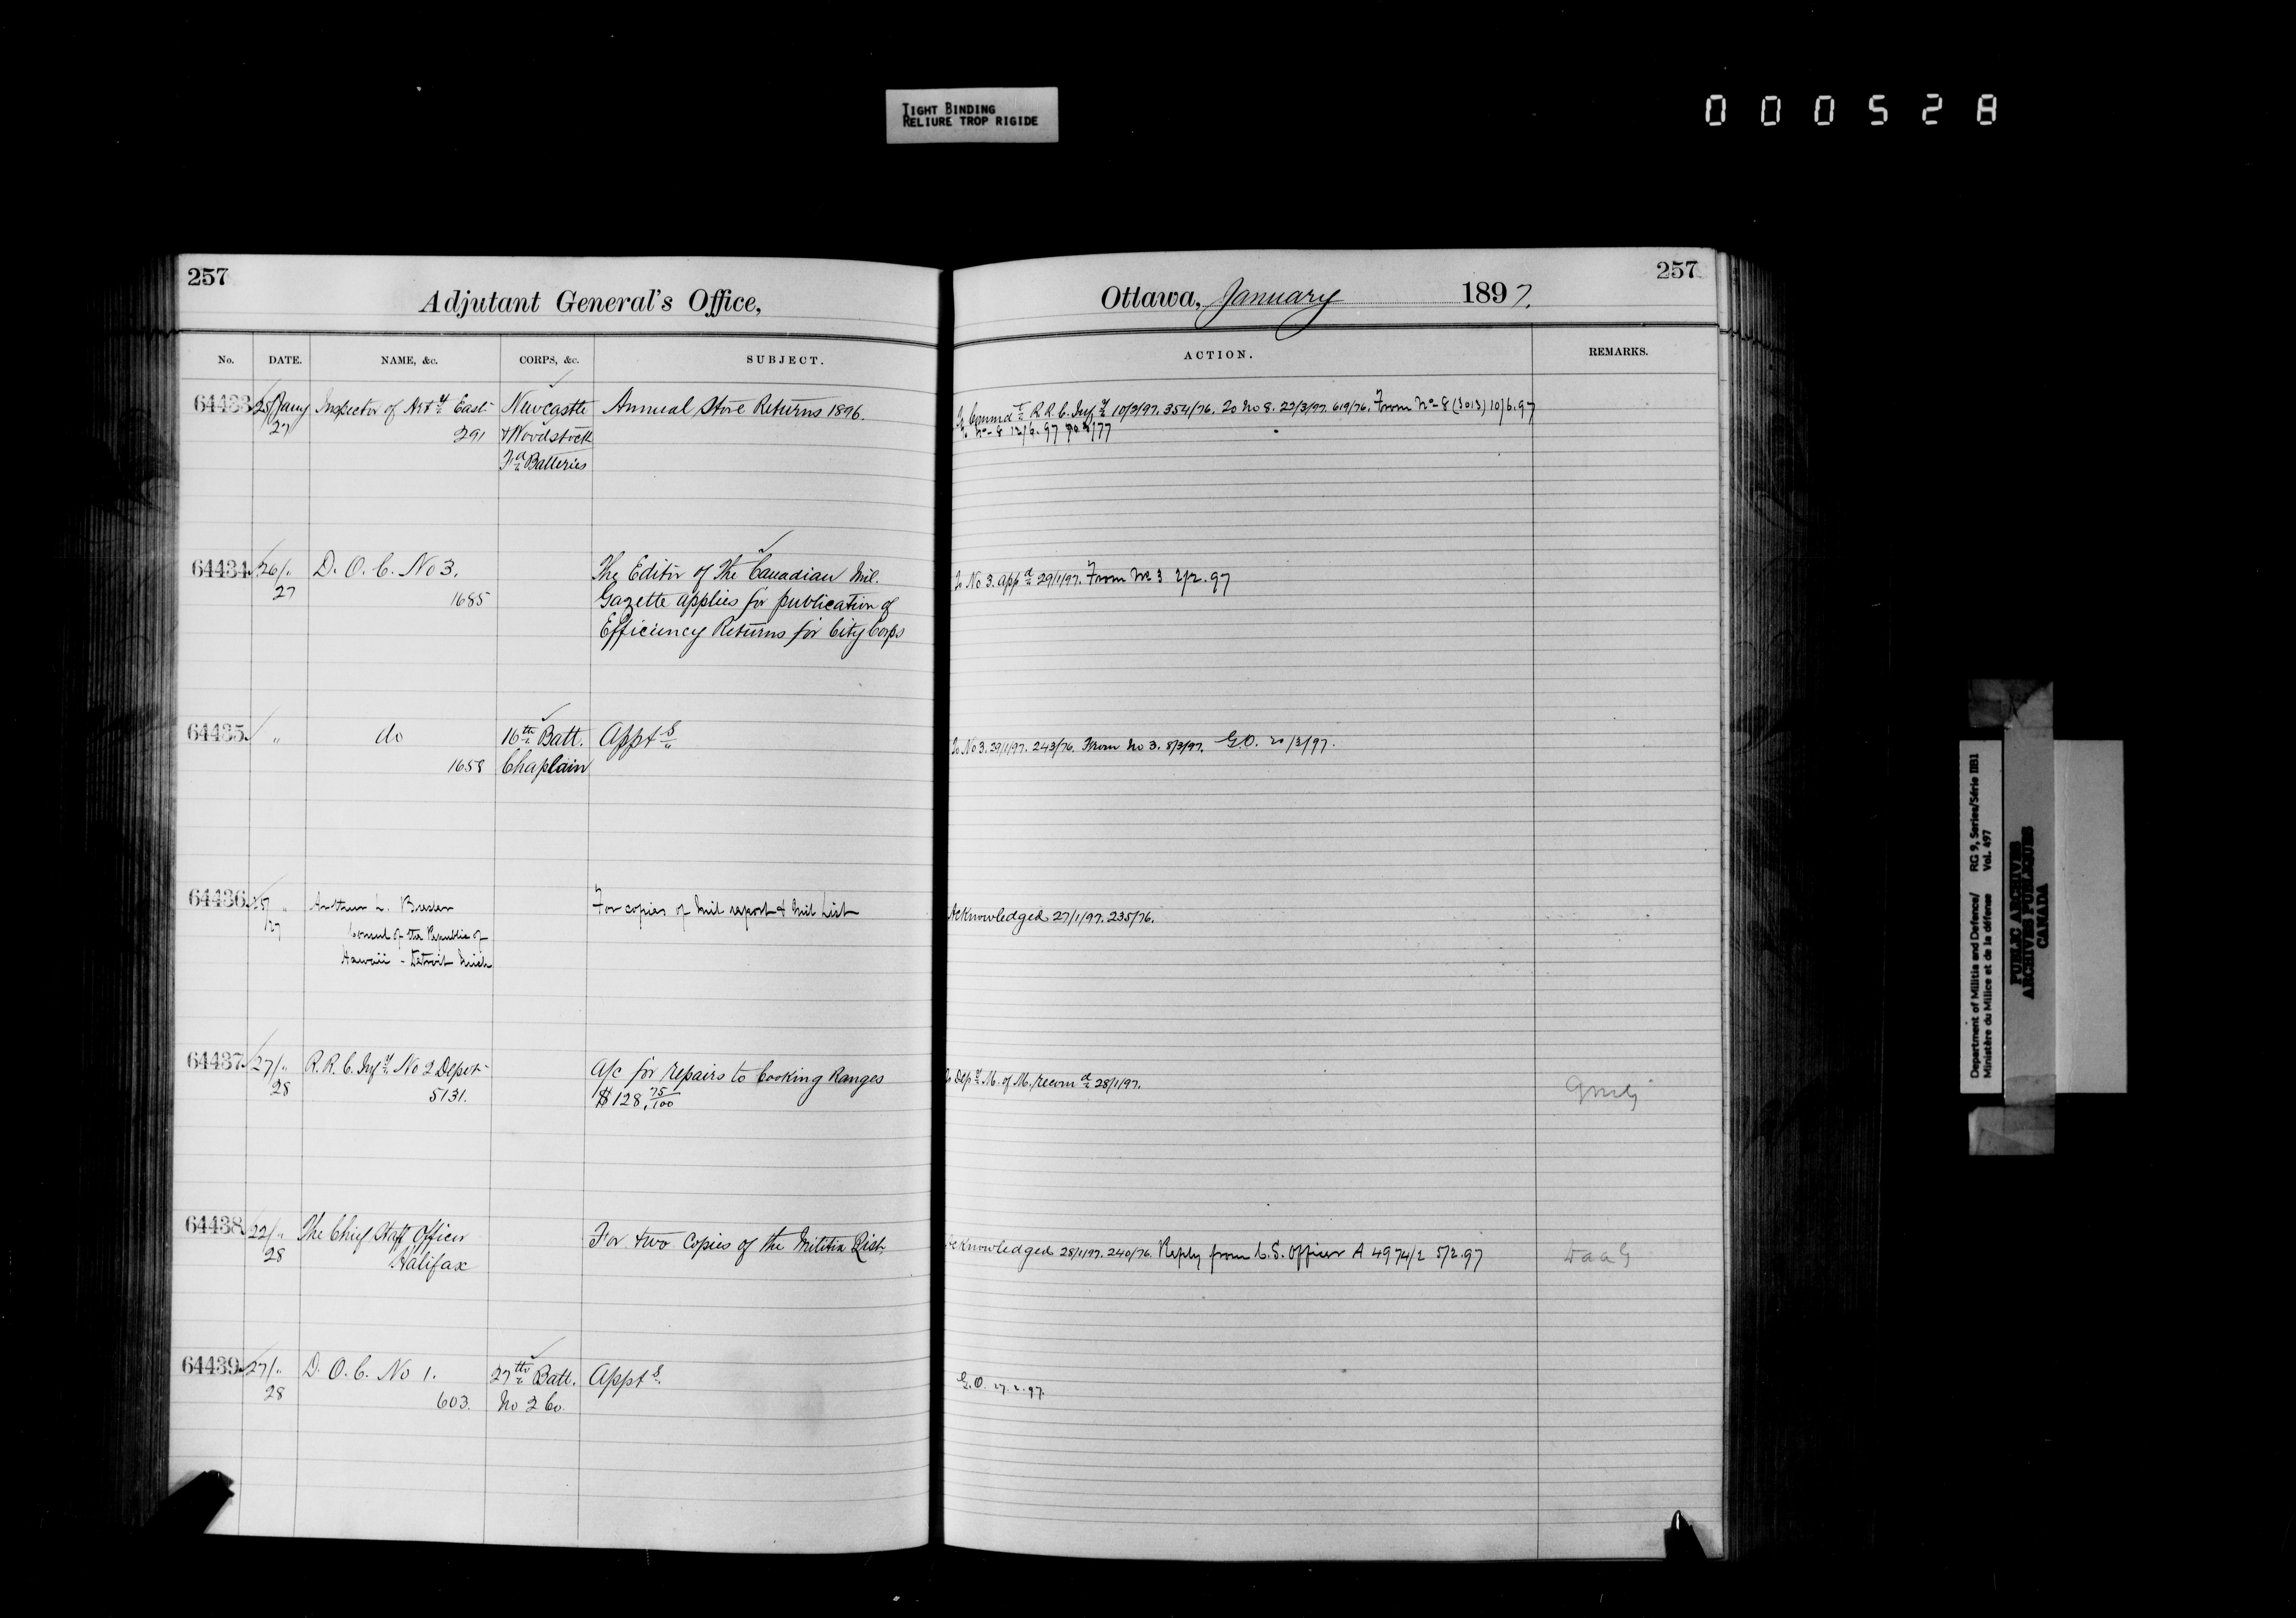 TIGHT BINDING
RELIURE TROP RIGIDE
000528
257
Adjutant General's Office,
No. DATE. NAME, &c. CORPS, &c. SUBJECT.
64433 25/Jany Inspector of Arty East Newcastle Annual Store Returns 1896.
27 291 & Woodstock
Fd Batteries
64434 26/" D. O. C. No 3. The Editor of the Canadian Mil.
27 1685 Gazette applies for publication of
Efficiency Returns for City Corps
64435 " do 16th Batt. Appts
1658 Chaplain
64436 " L.
27 Consul of the Republic of For copies of Mil report & Mil List
Hawaii - Detroit Mich
64437 27/" R. R. C. Infy No 2 Depot A/c for repairs to Cooking Ranges
28 5131. $128, 75/100
64438 22/" The Chief Staff Officer For two copies of the Militia List
28 Halifax
64439 27/" D. O. C. No 1. 27th Batt. Appts
28 603. No 2 Co.
257
Ottawa, January 1897.
ACTION. REMARKS.
To Commdt R. R. C. Infy 10/3/97. 354/76. To No 8. 23/3/97. 619/76. From No 8 (3013) 10/6.97
To No 8 12/6.97
To No 3. appd 29/1/97. From No 3 2/2.97
To No 3. 29/1/97. 243/76. From No 3. 8/3/97. G.O. 20/3/97.
Acknowledged 27/1/97. 235/76.
To Depy M. of M. recomd 28/1/97.
Acknowledged 28/1/97. 240/76. Reply from C. S. Officer A 4974/2 5/2.97 DAAG
G. O. 27.2.97.
Department of Militia and Defence/ RG 9, Series/Série IIB1
Ministère du Milice et de la défense Vol. 497
PUBLIC ARCHIVES
ARCHIVES PUBLIQUES
CANADA